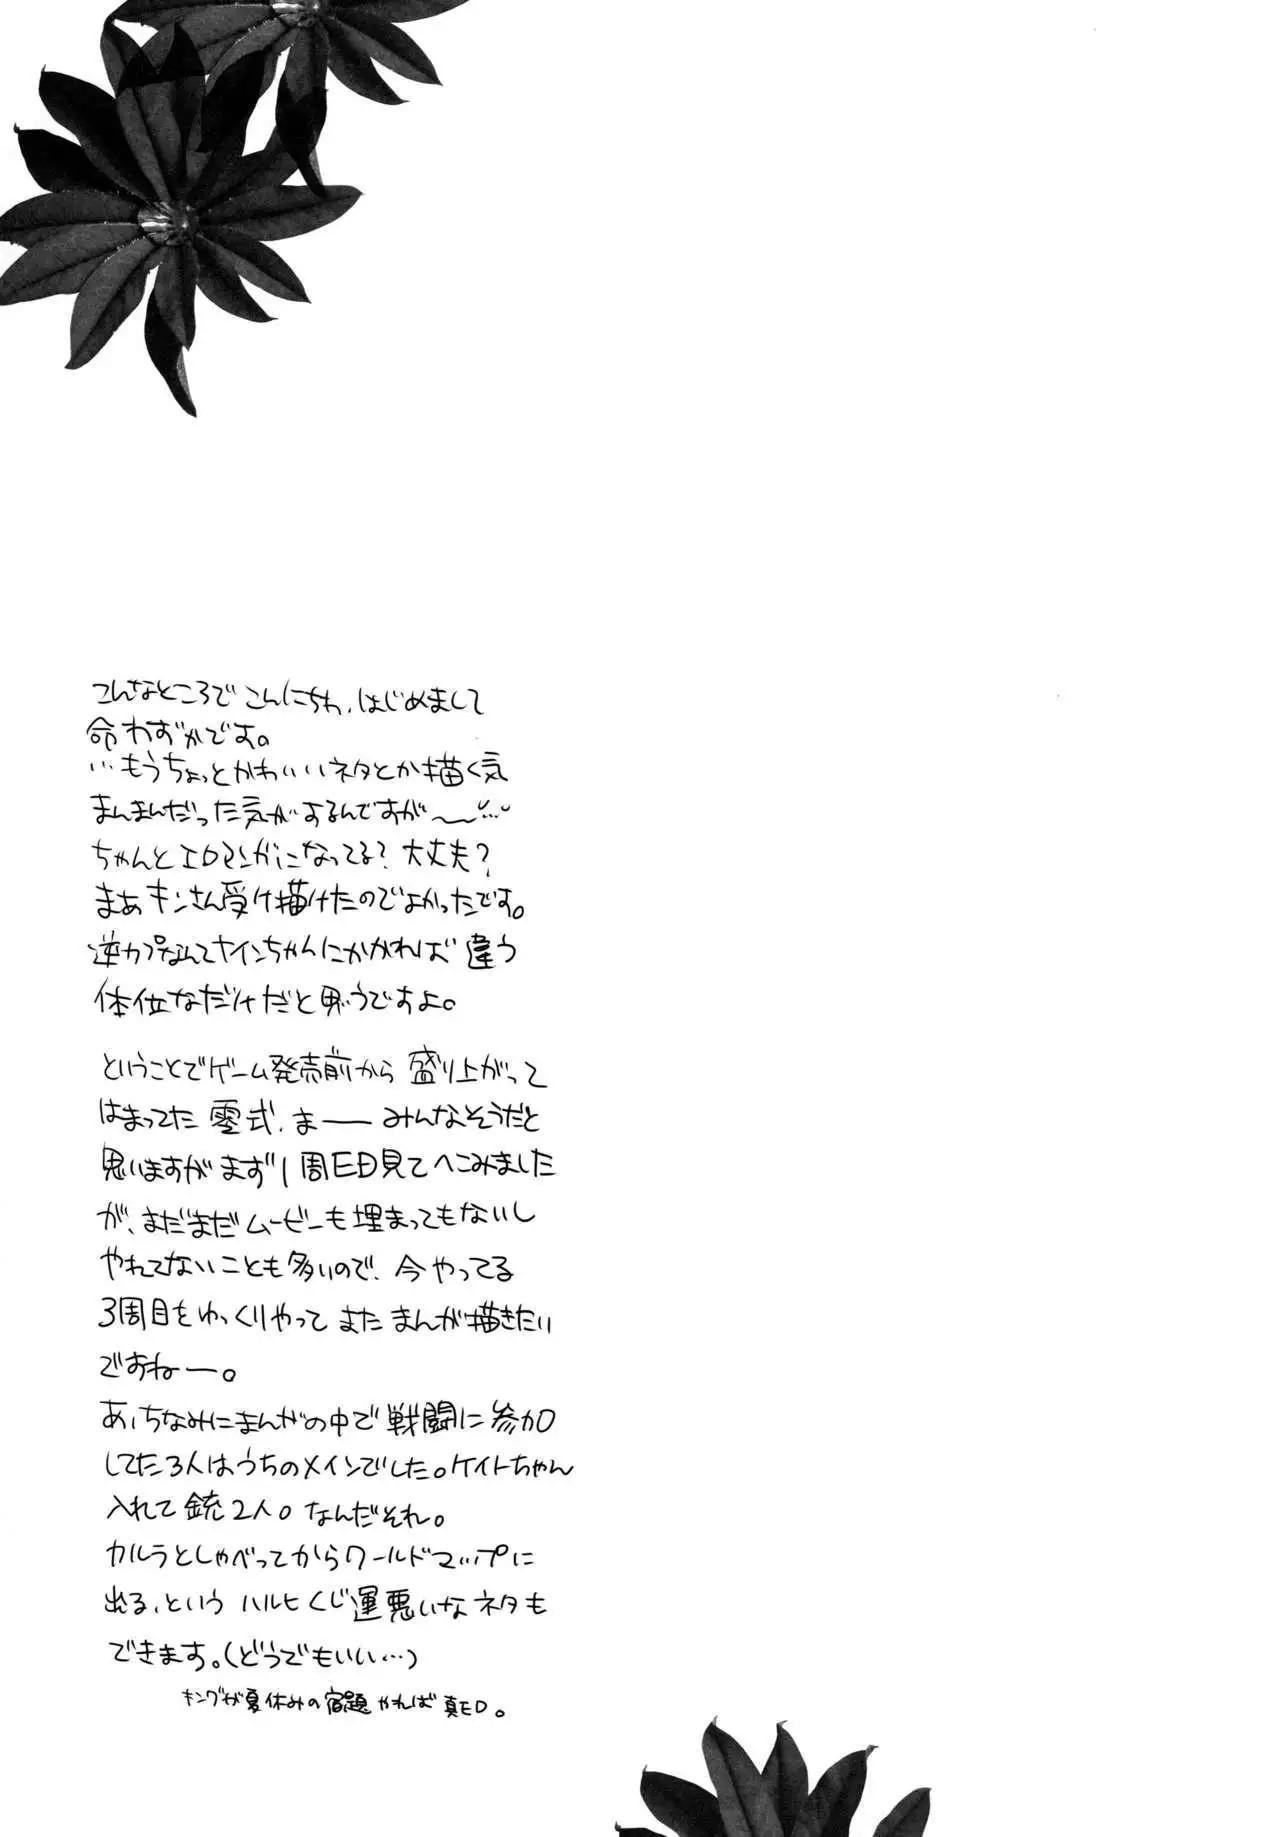 こんなところでこんにちわ、はじめまして
命わずかです。
…もうちょっとかわいいネタとか描く気
まんまんだった気がするんですが〜…
ちゃんとエロマンガになってる？大丈夫？
まあキンさん受け描けたのでよかったです。
逆カプなんてナインちゃんにかかれば違う
体位なだけだと思うですよ。
ということでゲーム発売前から盛り上がって
はまってた零式、まーーみんなそうだと
思いますがまず1周ED見てへこみました
が、まだまだムービーも埋まってもないし
やれてないことも多いので、今やってる
3周目をゆっくりやってまたまんが描きたい
ですねー。
あ、ちなみにまんがの中で戦闘に参加
してた3人はうちのメインでした。ケイトちゃん
入れて銃2人。なんだそれ。
カルラとしゃべってからワールドマップに
出る、というハルヒくじ運悪いなネタも
できます。（どうでもいい…）
キングが夏休みの宿題やれば真ED。